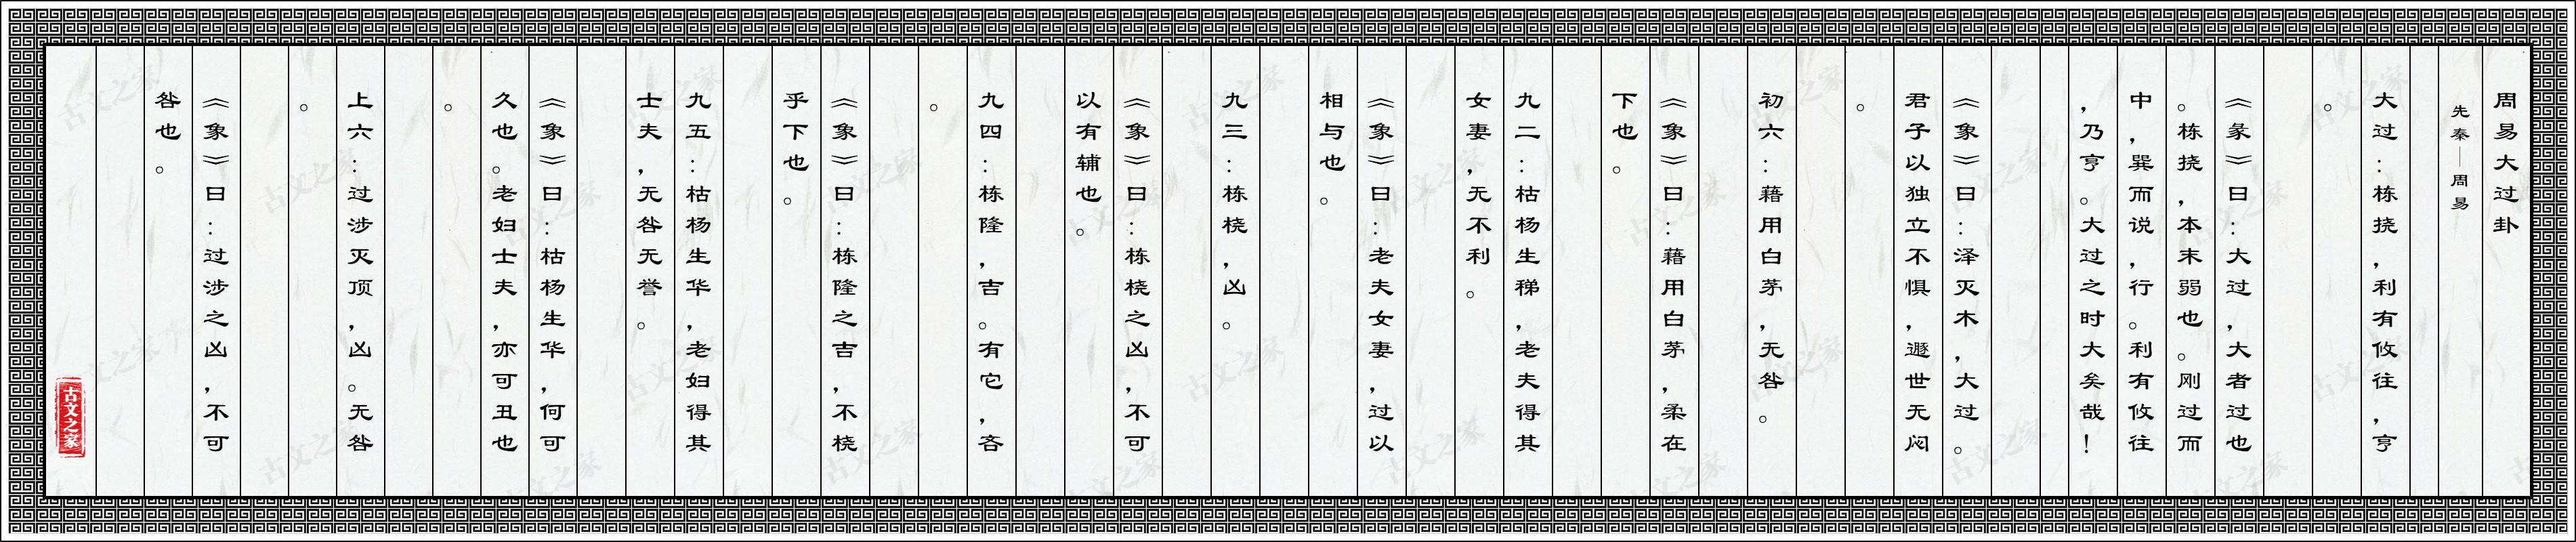 周易大过卦
先秦—周易
大过：栋挠，利有攸往，亨
。
《彖》曰：大过，大者过也
。栋挠，本末弱也。刚过而
中，巽而说，行。利有攸往
，乃亨。大过之时大矣哉！
《象》曰：泽灭木，大过。
君子以独立不惧，遯世无闷
。
初六：藉用白茅，无咎。
《象》曰：藉用白茅，柔在
下也。
九二：枯杨生稊，老夫得其
女妻，无不利。
《象》曰：老夫女妻，过以
相与也。
九三：栋桡，凶。
《象》曰：栋桡之凶，不可
以有辅也。
九四：栋隆，吉。有它，吝
。
《象》曰：栋隆之吉，不桡
乎下也。
九五：枯杨生华，老妇得其
士夫，无咎无誉。
《象》曰：枯杨生华，何可
久也。老妇士夫，亦可丑也
。
上六：过涉灭顶，凶。无咎
。
《象》曰：过涉之凶，不可
咎也。
古文之家